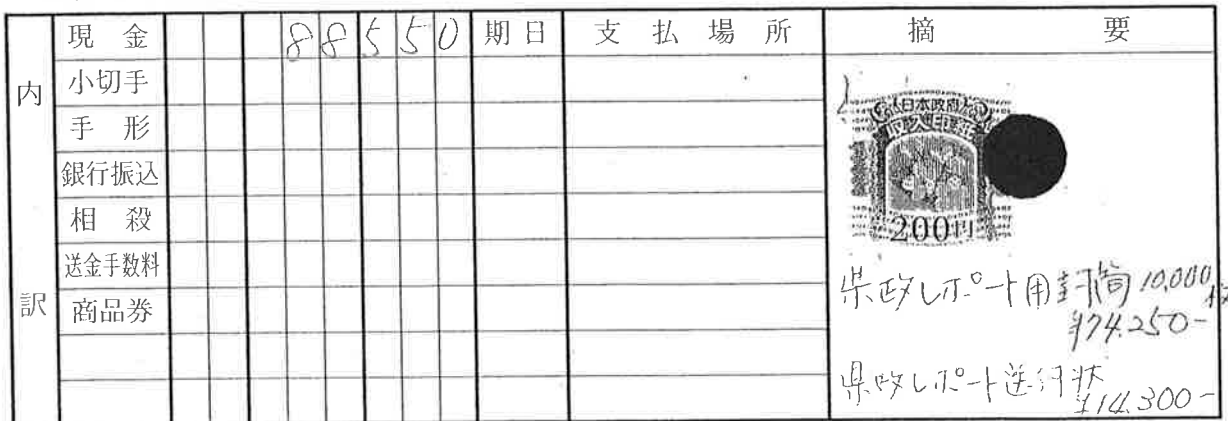 現金 88550 期日 支払場所 摘要
内訳
小切手
手形
銀行振込
相殺
送金手数料
商品券
日本政府
収入印紙
200円
県政レポート用封筒 10,000枚
¥74,250-
県政レポート送付状
¥14,300-